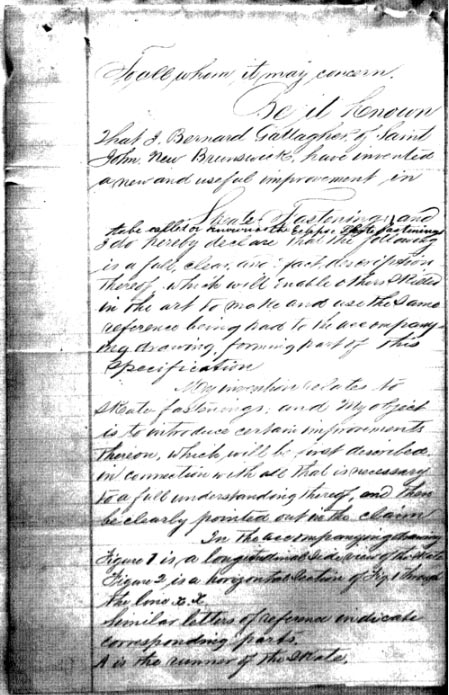 To all whom it may concern.
Be it Known
That I Bernard Gallagher of Saint
John New Brunswick, have invented
a new and useful improvement in
Skate Fastenings, and
to be called or known as the Skate fastenings
I do hereby declare that the following
is a full, clear, and exact description
thereof which will enable others skilled
in the art to make and use the same
reference being had to the accompany-
ing drawing, forming part of this
Specification
My invention relates to
Skate fastenings, and my object
is to introduce certain improvements
thereon, which will be first described
in connection with all that is necessary
to a full understanding thereof, and then
be clearly pointed out in the claim
In the accompanying drawing
Figure 1 is a longitudinal side view of the skate
Figure 2 is a horizontal section of Fig 1 through
the line x.x.
Similar letters of reference indicate
corresponding parts.
A is the runner of the skate,